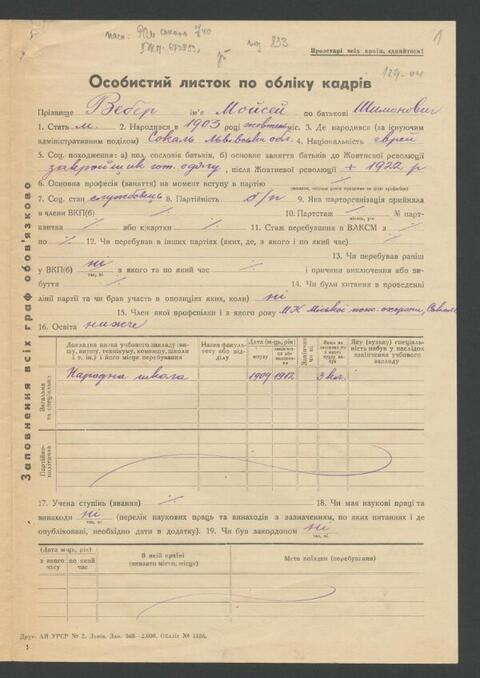 1
Пролетарі всіх країн, єднайтеся!
Особистий листок по обліку кадрів
Прізвище Вебер ім'я Мойсей по батькові Шимонович
1. Стать м. 2. Народився в 1903 році жовтень міс. 3. Де народився (за існуючим
адміністративним поділом) Сокаль Львівської обл. 4. Національність єврей
5. Соц. походження: а) кол. сословіє батьків, б) основне заняття батьків до Жовтневої революції
закройщик гот. одягу, після Жовтневої революції + 1922 р
6. Основна професія (заняття) на момент вступу в партію
7. Соц. стан службовець 8. Партійність б/п 9. Яка парторганізація прийняла
в члени ВКП(б) 10. Партстаж № парт-
квитка або к/картки 11. Стаж перебування в ВЛКСМ з
по 12. Чи перебував в інших партіях (яких, де, з якого і по який час)
13. Чи перебував раніш
у ВКП(б) ні з якого та по який час і причини виключення або ви-
так, ні
буття 14. Чи були хитання в проведенні
лінії партії та чи брав участь в опозиціях, яких, коли) ні
15. Член якої профспілки і з якого року
16. Освіта нижче
Докладна назва учбового закладу (ви-
шу, втишу, технікуму, комвишу, школи
і т. ін.) і його місце перебування
Назва факуль-
тету або від-
ділу
Дата (м-ць, рік)
вступу
Яку (вузьку) спеціаль-
ність набув у наслідок
закінчення учбового
закладу
Загальна
та спеціальна
Народна школа 1909 1912 3 кл.
Партійно-
політична
17. Учена ступінь (звання) 18. Чи має наукові праці та
винаходи ні (перелік наукових праць та винаходів з зазначенням, по яких питаннях і де
так, ні
опубліковані, необхідно дати в додатку). 19. Чи був закордоном ні
так, ні
(Дата м-ць, рік)
з якого
часу
по який
час
В якій країні
(вказати місто, місце)
Мета поїздки (перебування)
Заповнення всіх граф обов'язкове
Друк. АН УРСР № 2. Львів. Зам. 368—2.000. Обліт № 1186.